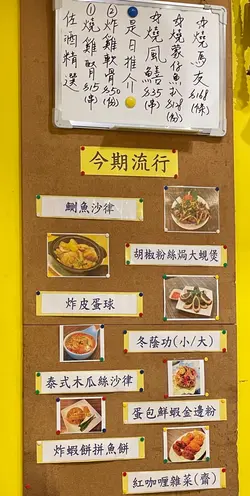 是日推介
☆燒馬友 $168(條)
☆燒蒙仔魚扒 $128(份)
☆燒風鱔 $35(串)
②炸雞軟骨 $50(份)
①燒雞軟骨 $15(串)
佐酒精選
今期流行
鯏魚沙律
胡椒粉絲焗大蜆煲
炸皮蛋球
冬蔭功(小/大)
泰式木瓜絲沙律
蛋包鮮蝦金邊粉
炸蝦餅拼魚餅
紅咖喱雜菜(齋)